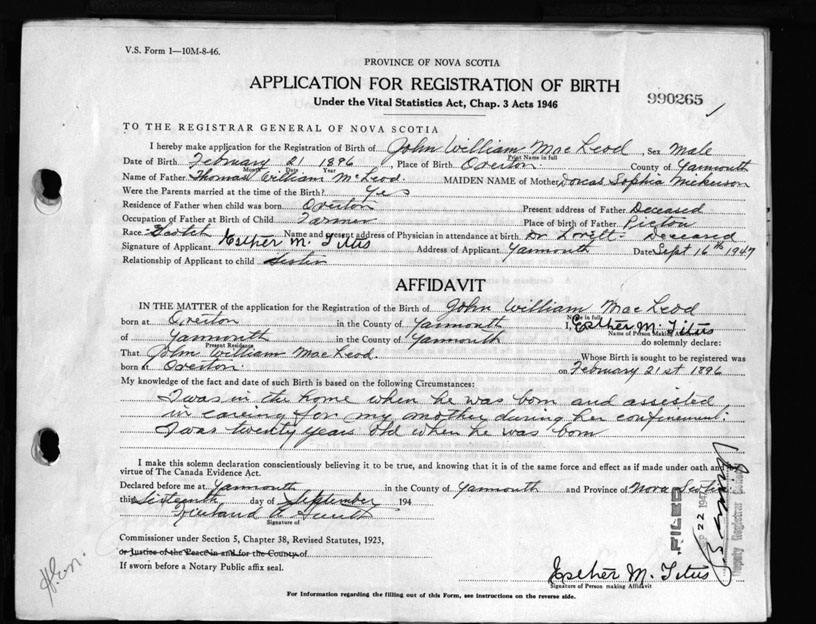 V.S. Form 1—10M-8-46.
PROVINCE OF NOVA SCOTIA
APPLICATION FOR REGISTRATION OF BIRTH
Under the Vital Statistics Act, Chap. 3 Acts 1946
990265
TO THE REGISTRAR GENERAL OF NOVA SCOTIA
I hereby make application for the Registration of Birth of John William MacLeod, Sex Male
Print Name in full
Date of Birth February 21 1896, Place of Birth Overton County of Yarmouth
Month Date Year
Name of Father Thomas William McLeod. MAIDEN NAME of Mother Dorcas Sophia Nickerson
Were the Parents married at the time of the Birth? Yes
Residence of Father when child was born Overton Present address of Father Deceased
Occupation of Father at Birth of Child Farmer Place of birth of Father Pictou
Race Scotch Name and present address of Physician in attendance at birth Dr Lovitt - Deceased
Signature of Applicant Esther M. Titus Address of Applicant Yarmouth Date Sept 16th 1947
Relationship of Applicant to child Sister
AFFIDAVIT
IN THE MATTER of the application for the Registration of the Birth of John William MacLeod
Name in full
born at Overton in the County of Yarmouth I, Esther M. Titus
Name of Person Making Affidavit
of Yarmouth in the County of Yarmouth do solemnly declare:
Present Residence
That John William MacLeod. Whose Birth is sought to be registered was
born at Overton on February 21st 1896
My knowledge of the fact and date of such Birth is based on the following Circumstances:
I was in the home when he was born and assisted
in caring for my mother during her confinement.
I was twenty years old when he was born
I make this solemn declaration conscientiously believing it to be true, and knowing that it is of the same force and effect as if made under oath and by
virtue of The Canada Evidence Act.
Declared before me at Yarmouth in the County of Yarmouth and Province of Nova Scotia
this Sixteenth day of September 194
Signature of
Commissioner under Section 5, Chapter 38, Revised Statutes, 1923,
or Justice of the Peace in and for the County of
If sworn before a Notary Public affix seal.
FILED
Deputy Registrar General
Esther M. Titus
Signature of Person making Affidavit
For Information regarding the filling out of this Form, see instructions on the reverse side.